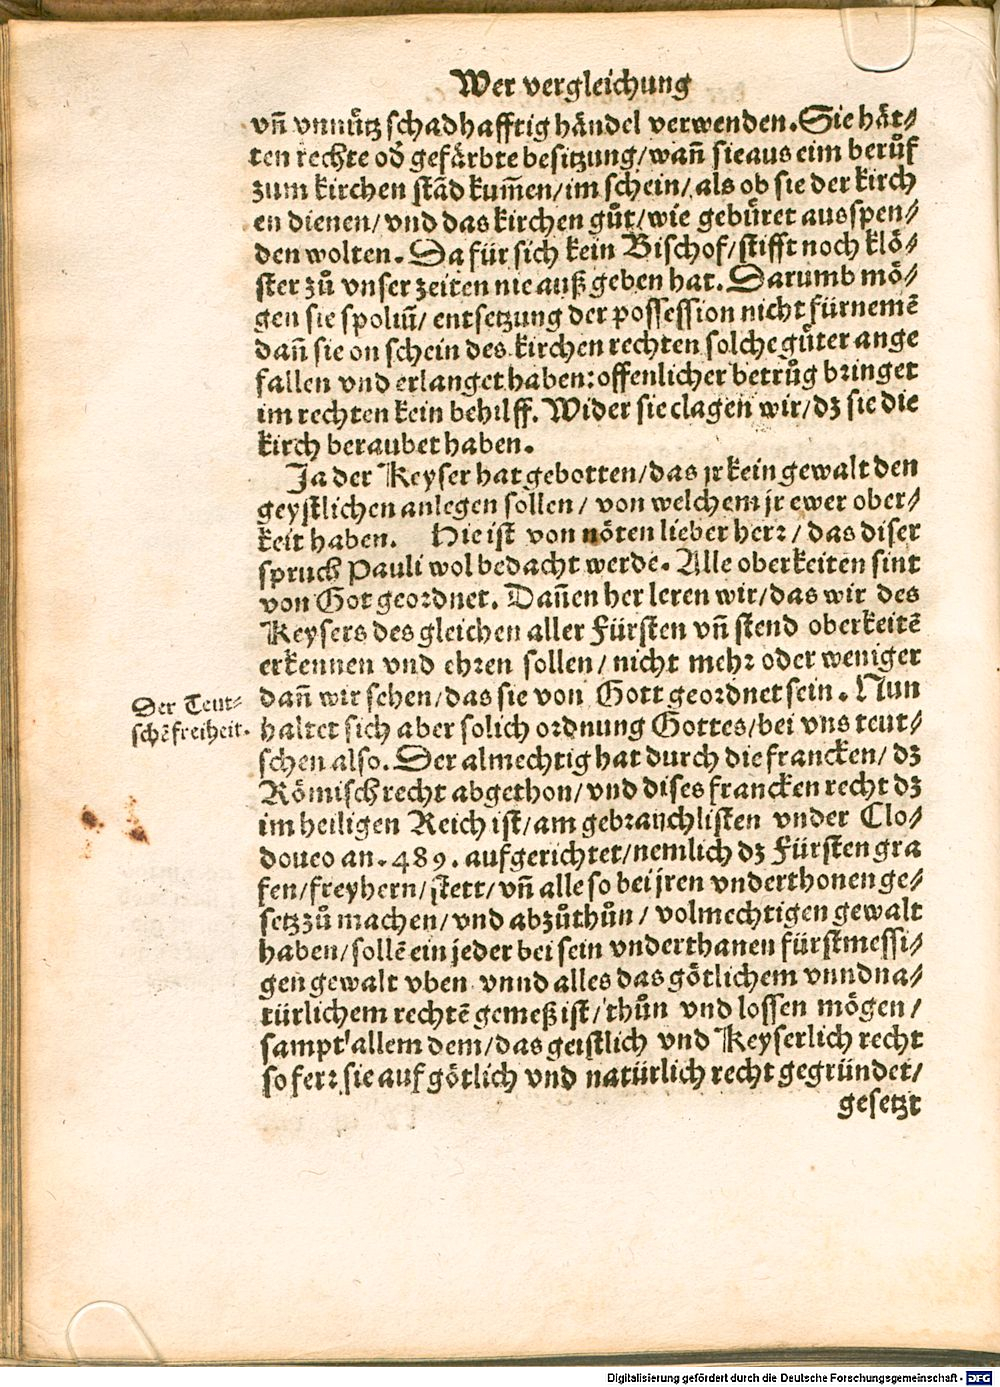 Wer vergleichung
vñ vnnütz schadhafftig händel verwenden. Sie hät/
ten rechte oď gefärbte besitzung/ wañ sie aus eim berůf
zum kirchen stād kum̄en/ im schein/ als ob sie der kirch
en dienen/ vnd das kirchen gůt/ wie gebüret ausspen/
den wolten. Da für sich kein Bischof/ stifft noch klö/
ster zů vnser zeiten nie auß geben hat. Darumb mö/
gen sie spoliū/ entsetzung der possession nicht fürnemē
dañ sie on schein des kirchen rechten solche gůter ange
fallen vnd erlanget haben: offenlicher betrůg bringet
im rechten kein behilff. Wider sie clagen wir/ dz sie die
kirch beraubet haben.
Ja der Keyser hat gebotten/ das jr kein gewalt den
geystlichen anlegen sollen/ von welchem jr ewer ober/
keit haben. Hie ist von nöten lieber herr/ das diser
spruch Pauli wol bedacht werde. Alle oberkeiten sint
von Got geordnet. Dañen her leren wir/ das wir des
Keysers des gleichen aller Fürsten vñ stend oberkeitē
erkennen vnd ehren sollen/ nicht mehr oder weniger
dañ wir sehen/ das sie von Gott geordnet sein. Nun
Der Teut-
schē freiheit.
haltet sich aber solich ordnung Gottes/ bei vns teut/
schen also. Der almechtig hat durch die francken/ dz
Römisch recht abgethon/ vnd dises francken recht dz
im heiligen Reich ist/ am gebrauchlisten vnder Clo/
doueo an. 489. aufgerichtet/ nemlich dz Fürsten gra
fen/ freyhern/ stett/ vñ alle so bei jren vnderthonen ge/
setz zů machen/ vnd abzůthůn/ volmechtigen gewalt
haben/ sollē ein jeder bei sein vnderthanen fürstmessi/
gen gewalt vben vnnd alles das götlichem vnnd na/
türlichem rechtē gemeß ist/ thůn vnd lossen mögen/
sampt allem dem/ das geistlich vnd Keyserlich recht
so ferr sie auf götlich vnd natürlich recht gegründet/
gesetzt
Digitalisierung gefördert durch die Deutsche Forschungsgemeinschaft - DFG